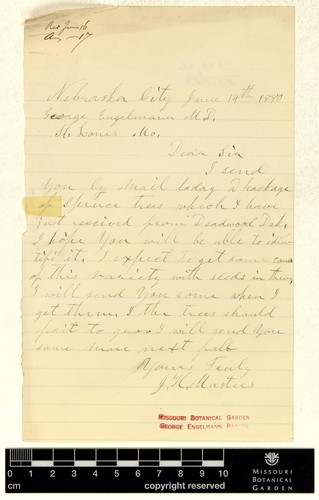 Rec June 16
An — 17
Nebraska City June 14th 1880
George Engelmann M.D.
St. Louis Mo.
Dear Sir
I send
You by mail today Package
of Spruce trees which I have
just received from Deadwood Dak,
I hope You will be able to iden
tify it. I expect to get some cones
of this variety with seeds in them,
I will send You some when I
get them. If the trees should
fail to grow I will send You
some more next fall
Yours Truly
J. H. Masters
MISSOURI BOTANICAL GARDEN
GEORGE ENGELMANN PAPERS
0 1 2 3 4 5 6 7 8 9 10
cm
copyright reserved
MISSOURI
BOTANICAL
GARDEN